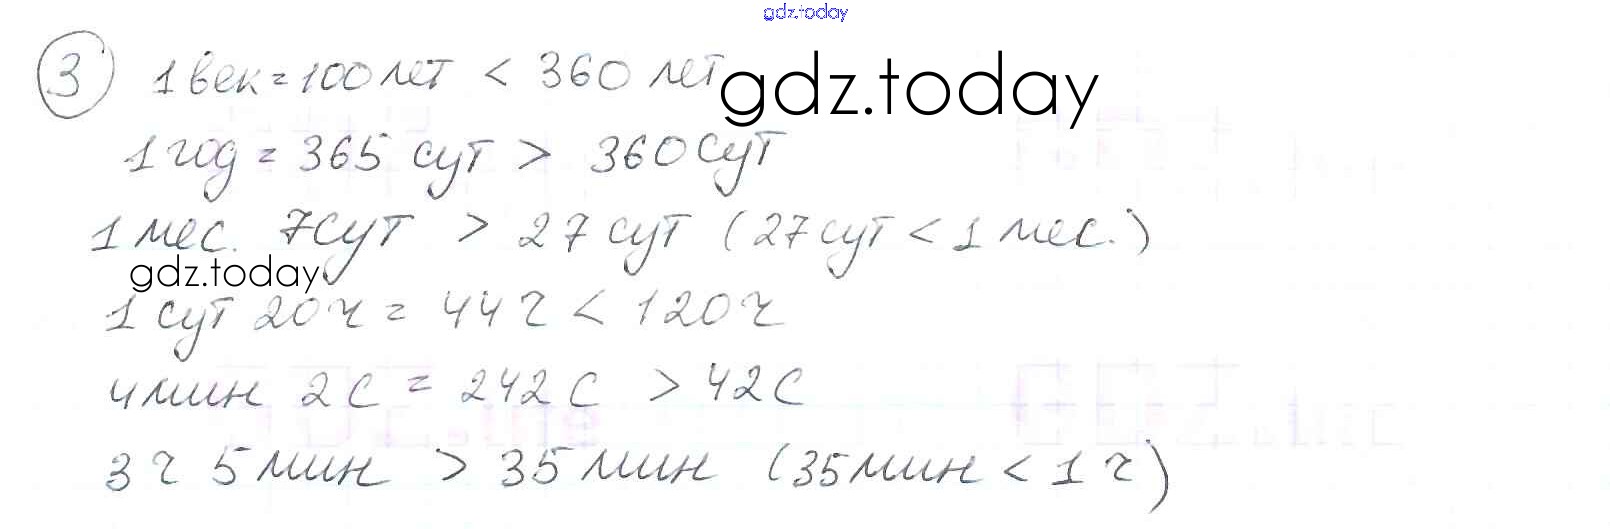 gdz.today
3 1 век = 100 лет < 360 лет
gdz.today
1 год = 365 сут > 360 сут
1 мес. 7 сут > 27 сут (27 сут < 1 мес.)
gdz.today
1 сут 20 ч = 44 ч < 120 ч
4 мин 2 с = 242 с > 42 с
3 ч 5 мин > 35 мин (35 мин < 1 ч)